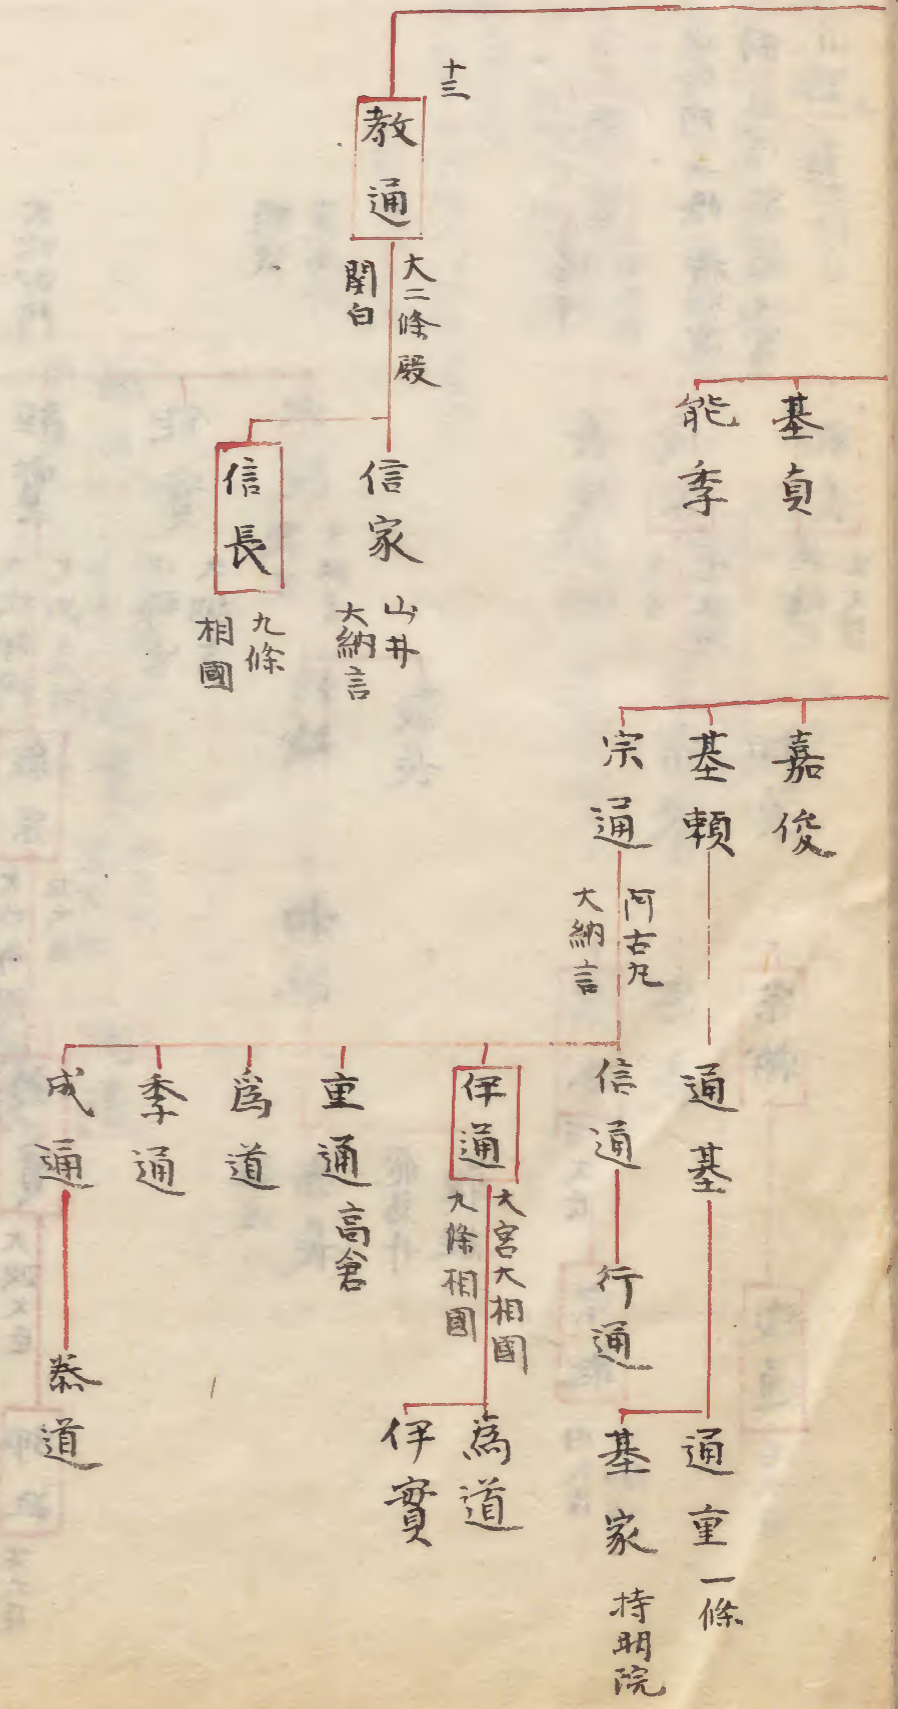 基貞
能季
十三
教通
大二條殿
関白
信家
山井
大納言
信長
九條
相國
嘉俊
基頼
宗通
阿古丸
大納言
通基
信通
伊通
大宮大相國
九條相國
重通 高倉
爲道
季通
成通
行通
通重 一條
基家 持明院
為道
伊實
泰道